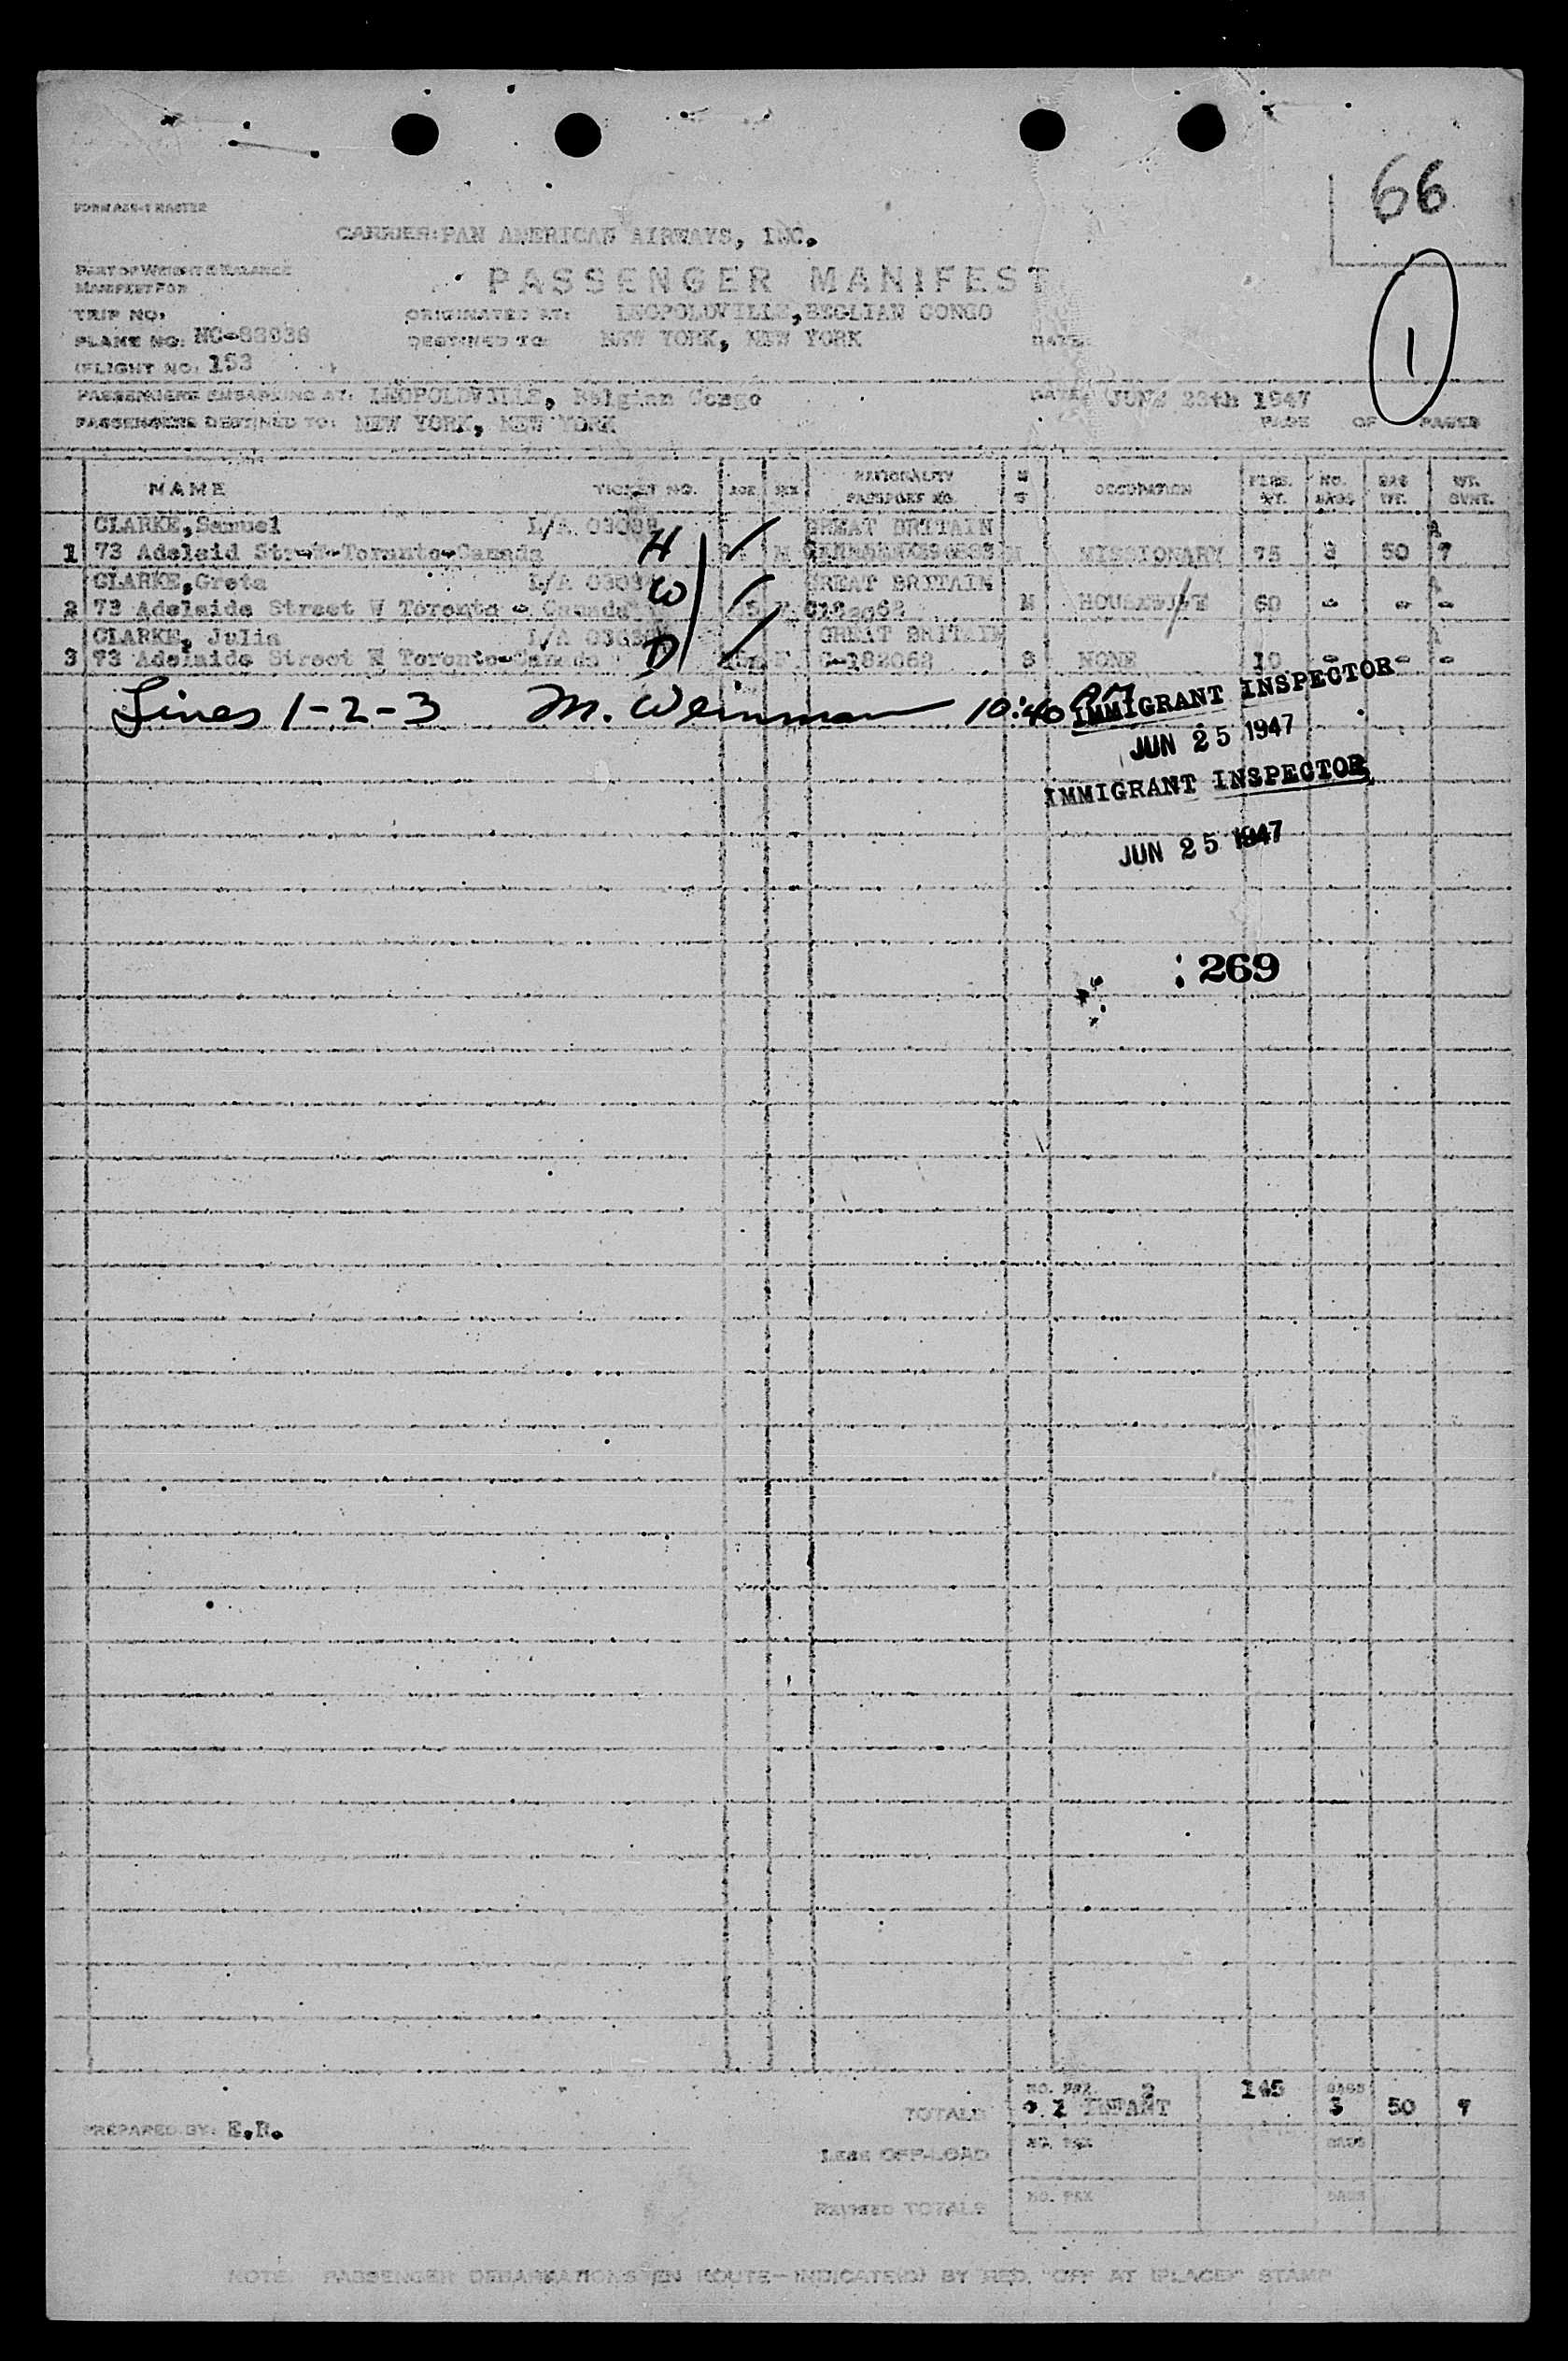 66
CARRIER: PAN AMERICAN AIRWAYS, INC.
PART OF WEIGHT & BALANCE
MANIFEST FOR
PASSENGER MANIFEST
1
TRIP NO:
ORIGINATED AT: LEOPOLDVILLE, BEGLIAN CONGO
PLANE NO:
DESTINED TO: NEW YORK, NEW YORK
DATE:
(FLIGHT NO: 153 )
PASSENGERS EMBARKING AT: LEOPOLDVILLE, Belgian Congo
DATE: JUNE 23th 1947
PASSENGERS DESTINED TO: NEW YORK, NEW YORK
PAGE OF PAGES
NAME TICKET NO. AGE SEX NATIONALITY PASSPORT NO. M S OCCUPATION PERS. WT. NO. BAGS BAG WT. WT. OVWT.
CLARKE, Samuel L/A GREAT BRITAIN A
1 73 Adelaid Toronto-Canada H M M MISSIONARY 75 3 50 7
CLARKE, Greta L/A GREAT BRITAIN A
2 73 Adelaide Street W Toronto - Canada W M HOUSEWIFE 60 - - -
CLARKE, Julia L/A GREAT BRITAIN A
3 73 Adelaide Street W Toronto-Canada D F. C-182062 S NONE 10 - - -
Lines 1-2-3 M. Weinman 10:40 PM
IMMIGRANT INSPECTOR
JUN 25 1947
IMMIGRANT INSPECTOR
JUN 25 1947
269
TOTALS NO. PAX 2 145 BAGS 3 50 7
1 INFANT
PREPARED BY:
LESS OFF-LOAD NO. PAX BAGS
REVISED TOTALS NO. PAX BAGS
NOTE: PASSENGER DEBARKATIONS EN ROUTE-INDICATE(D) BY RED, "OFF AT (PLACE)" STAMP